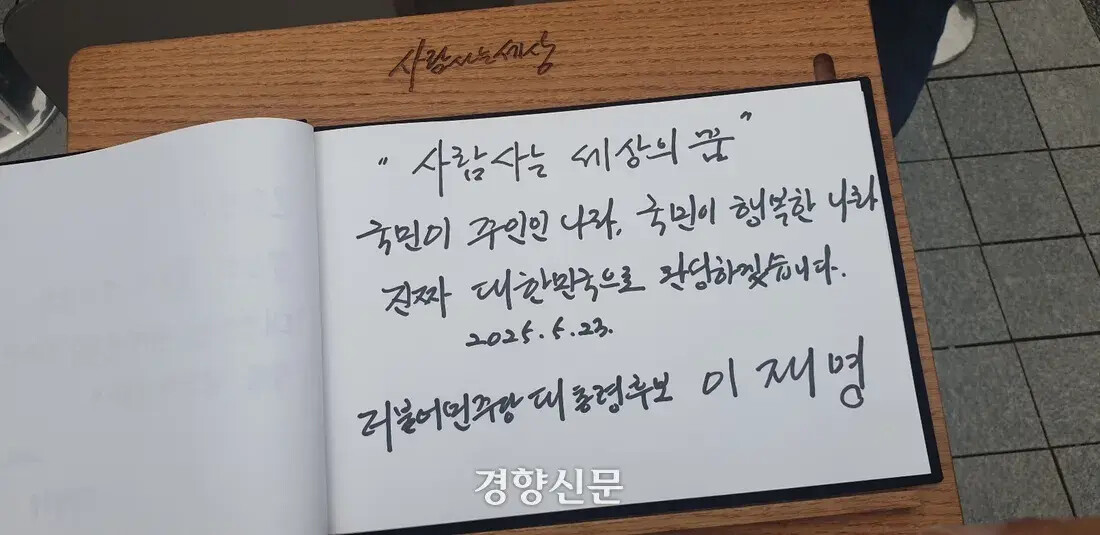 사람사는세상
"사람사는 세상의 꿈"
국민이 주인인 나라, 국민이 행복한 나라
진짜 대한민국으로 완성하겠습니다.
2025.5.23.
더불어민주당 대통령후보 이재명
경향신문